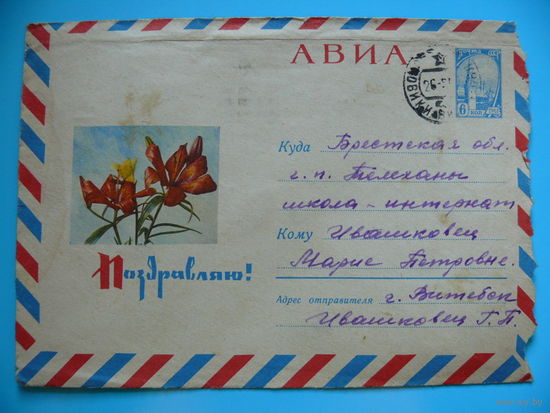 АВИА
ПОЧТА СССР
6 коп
Куда Брестская обл.
г. п. Телеханы
школа - интернат
Кому Ивашковец
Марие Петровне.
Поздравляю!
Адрес отправителя г. Витебск
Ивашковец Г. П.